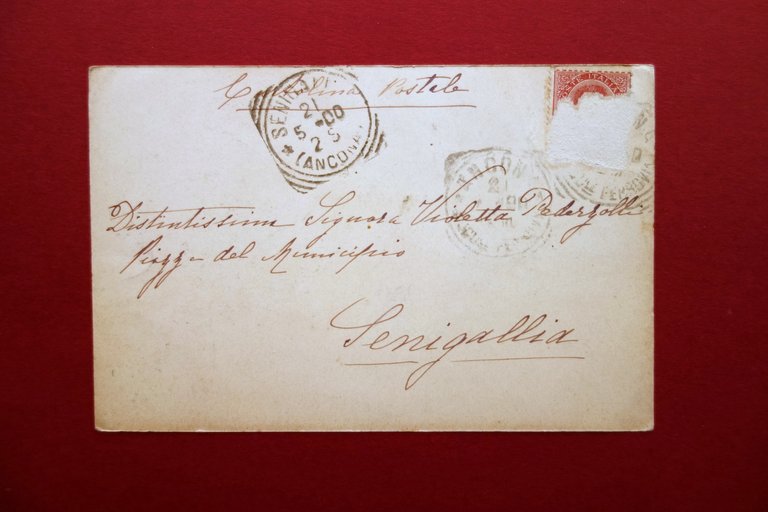 Cartolina Postale
POSTE ITALI
SENIGALLIA
21
5-00
2 S
* (ANCONA)
ANCONA
21
Distintissima Signora Violetta Pedergolli
Piazza del Municipio
Senigallia